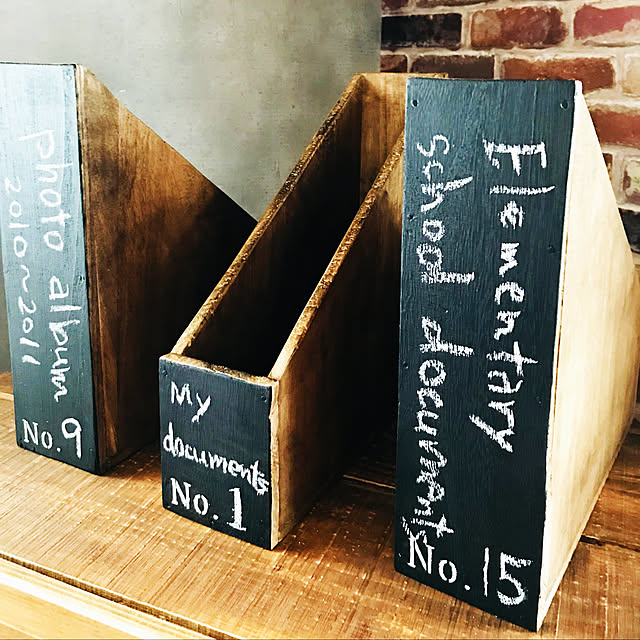 photo album
2010~2011
No. 9
My
documents
No. 1
Elementary
school documents
No. 15